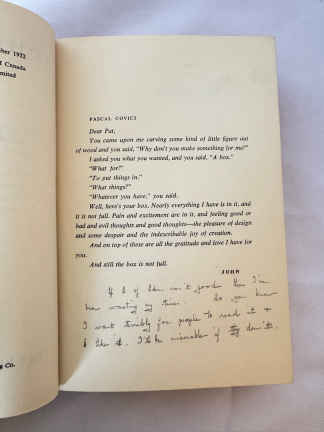 ber 1952
f Canada
imited
PASCAL COVICI
Dear Pat,
You came upon me carving some kind of little figure out
of wood and you said, "Why don't you make something for me?"
I asked you what you wanted, and you said, "A box."
"What for?"
"To put things in."
"What things?"
"Whatever you have," you said.
Well, here's your box. Nearly everything I have is in it, and
it is not full. Pain and excitement are in it, and feeling good or
bad and evil thoughts and good thoughts—the pleasure of design
and some despair and the indescribable joy of creation.
And on top of these are all the gratitude and love I have for
you.
And still the box is not full.
JOHN
If of Eden isn't good then I've
been wasting my time. So you know
I want terribly for people to read it &
like it. I'll be miserable if they don't.
g Co.